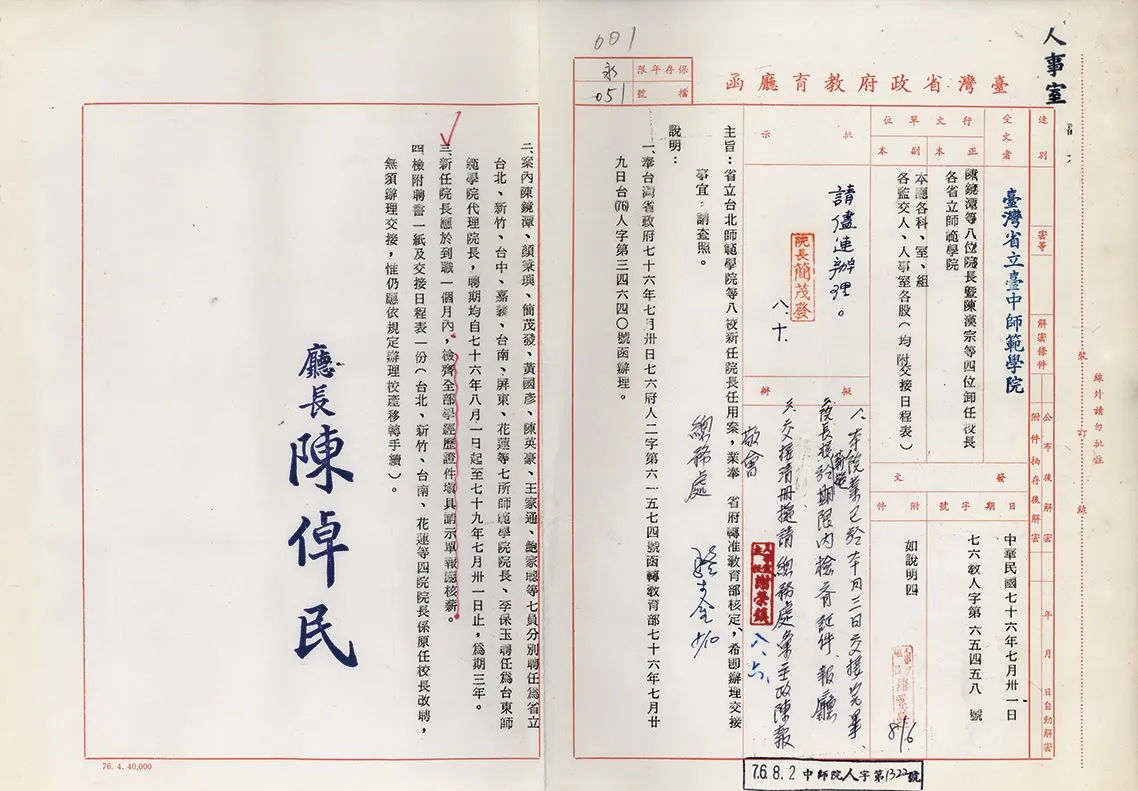 001
保存年限 永
檔號 051
臺灣省政府教育廳函
人事室
速別
密等
解密條件
公布後解密
附件抽存後解密
年月日自動解密
裝訂線
線外請勿批註
受文者
臺灣省立臺中師範學院
行文單位
正本
陳鏡潭等八位院長暨陳漢宗等四位卸任校長
各省立師範學院
副本
本廳各科、室、組
各監交人、人事室各股(均附交接日程表)
發文
日期
中華民國七十六年七月卅一日
字號
七六教人字第六五四五八號
附件
如說明四
8/6
批示
請儘速辦理。
院長簡茂發
八、十
擬辦
交接清冊擬請總務處彙主政陳報
敬會
總務處
謝榮鎮
八、六、
主旨:省立台北師範學院等八校新任院長任用案,業奉 省府轉准教育部核定,希即辦理交接
事宜,請查照。
說明:
一、奉台灣省政府七十六年七月卅日七六府人二字第六一五七四號函轉教育部七十六年七月廿
九日台(76)人字第三四六四〇號函辦理。
二、案內陳鏡潭、顏秉璵、簡茂發、黃國彥、陳英豪、王家通、鮑家聰等七員分別聘任為省立
台北、新竹、台中、嘉義、台南、屏東、花蓮等七所師範學院院長、李保玉聘任為台東師
範學院代理院長,聘期均自七十六年八月一日起至七十九年七月卅一日止,為期三年。
三、新任院長應於到職一個月內,檢齊全部學經歷證件填具請示單報廳核薪。
四、檢附聘書一紙及交接日程表一份(台北、新竹、台南、花蓮等四院院長係原任校長改聘,
無須辦理交接,惟仍應依規定辦理校產移轉手續)。
廳長陳倬民
76. 4. 40,000
76.8.2 中師院人字第1322號